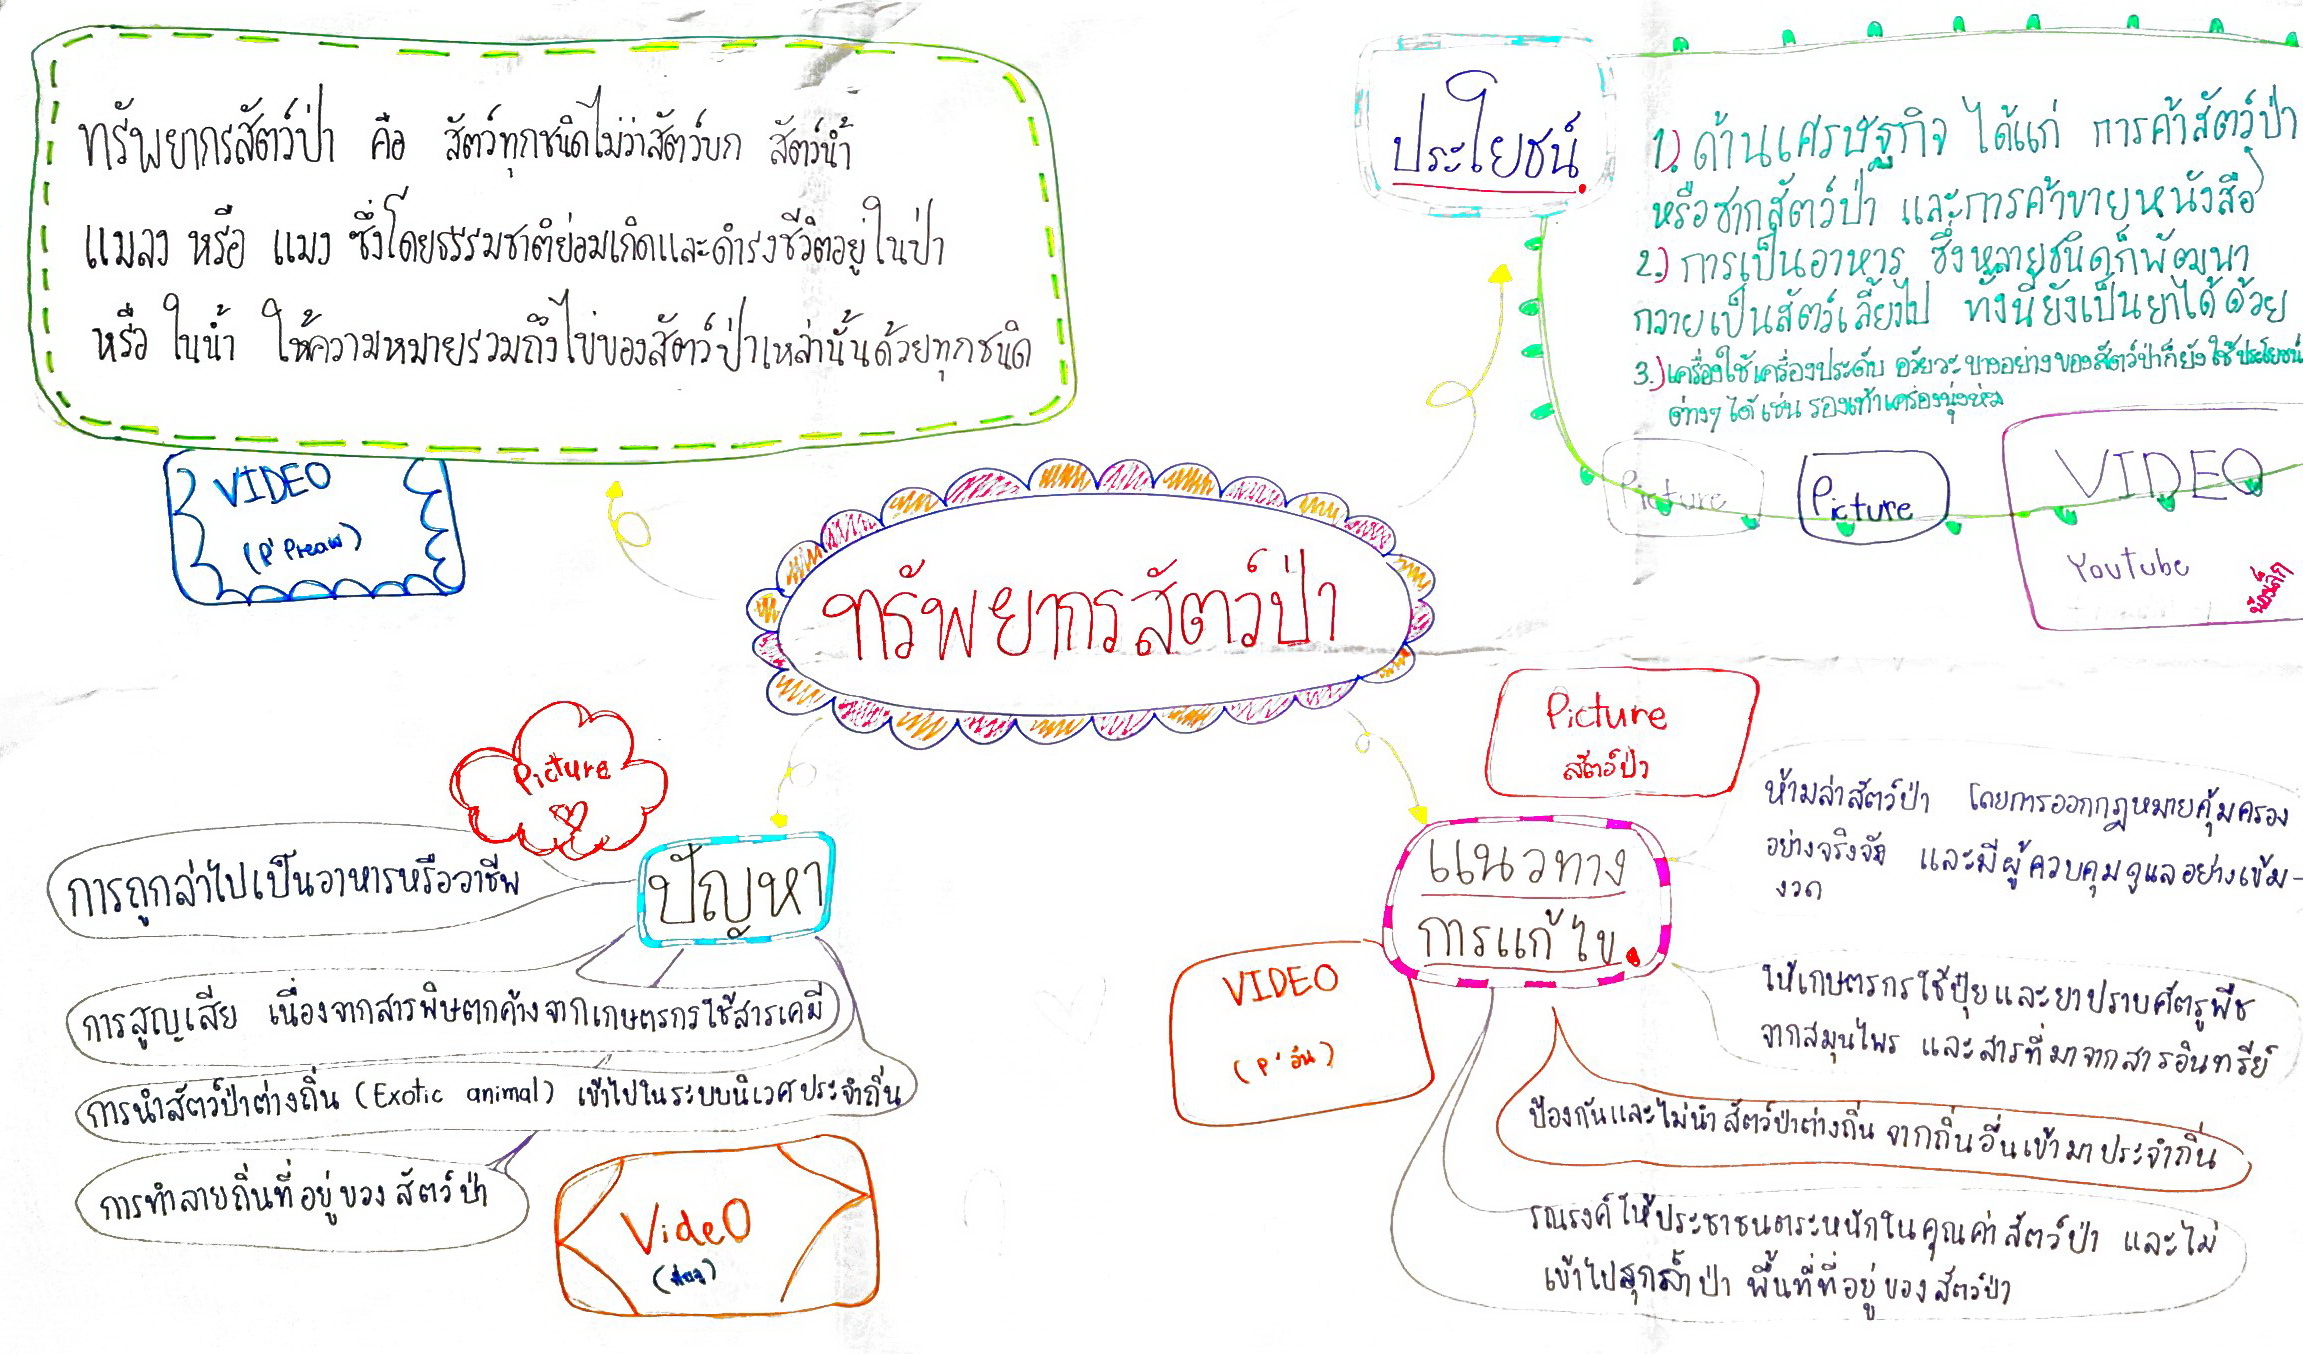 ทรัพยากรสัตว์ป่า คือ สัตว์ทุกชนิดไม่ว่าสัตว์บก สัตว์น้ำ
แมลง หรือ แมง ซึ่งโดยธรรมชาติย่อมเกิดและดำรงชีวิตอยู่ในป่า
หรือ ในน้ำ ให้ความหมายรวมถึงไข่ของสัตว์ป่าเหล่านั้นด้วยทุกชนิด
VIDEO
(P' Preaw)
ประโยชน์
1.) ด้านเศรษฐกิจ ได้แก่ การค้าสัตว์ป่า
หรือซากสัตว์ป่า และการค้าขายหนังสือ
2.) การเป็นอาหาร ซึ่งหลายชนิดก็พัฒนา
กลายเป็นสัตว์เลี้ยงไป ทั้งนี้ยังเป็นยาได้ด้วย
3.) เครื่องใช้เครื่องประดับ อวัยวะบางอย่างของสัตว์ป่าก็ยังใช้ประโยชน์
ต่างๆ ได้ เช่น รองเท้าเครื่องนุ่งห่ม
Picture
Picture
VIDEO
Youtube
ทรัพยากรสัตว์ป่า
Picture
ปัญหา
การถูกล่าไปเป็นอาหารหรืออาชีพ
การสูญเสีย เนื่องจากสารพิษตกค้างจากเกษตรกรใช้สารเคมี
การนำสัตว์ป่าต่างถิ่น (Exotic animal) เข้าไปในระบบนิเวศประจำถิ่น
การทำลายถิ่นที่อยู่ของสัตว์ป่า
VideO
Picture
สัตว์ป่า
แนวทาง
การแก้ไข
VIDEO
(P' อัน)
ห้ามล่าสัตว์ป่า โดยการออกกฎหมายคุ้มครอง
อย่างจริงจัง และมีผู้ควบคุมดูแลอย่างเข้ม-
งวด
ให้เกษตรกรใช้ปุ๋ยและยาปราบศัตรูพืช
จากสมุนไพร และสารที่มาจากสารอินทรีย์
ป้องกันและไม่นำสัตว์ป่าต่างถิ่น จากถิ่นอื่นเข้ามาประจำถิ่น
รณรงค์ให้ประชาชนตระหนักในคุณค่าสัตว์ป่า และไม่
เข้าไปลุกล้ำป่า พื้นที่ที่อยู่ของสัตว์ป่า